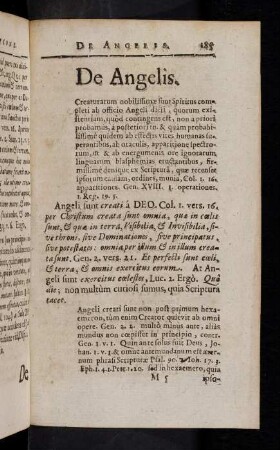 DE ANGELIS. 185
De Angelis.
Creaturarum nobilissimæ sunt Spiritus com-
pleti ab officio Angeli dicti, quorum exi-
stentiam, quod contingens est, non a priori
probamus, a posteriori tn. & quam probabi-
lissimè quidem ab effectis vires humanas su-
perantibus, ab oraculis, apparitione spectro-
rum, ut & ab energumenis ore ignotarum
linguarum blasphemias eructantibus, fir-
missimè denique ex Scriptura, quæ recenset
ipsorum creationem, ordines, nomina, Col. 1. 16.
apparitiones. Gen. XVIII. 3. operationes.
1. Reg. 19. 5.
Angeli sunt creati à DEO. Col. 1. vers. 16,
per Christum creata sunt omnia, quæ in cœlis
sunt, & quæ in terra, Visibilia, & Invisibilia, si-
ve throni, sive Dominationes, sive principatus,
sive potestates: omnia per illum & in illum crea-
ta sunt. Gen. 2, vers. 21. Et perfecti sunt cœli,
& terra, & omnis exercitus eorum. At An-
geli sunt exercitus cœlestis, Luc. 2. Ergò. Quâ
die; non multùm curiosi sumus, quia Scriptura
tacet.
Angeli creati sunt non post primum hexae-
meron, tùm enim Creator quievit ab omni
opere. Gen. 2. 2. multò minus ante, aliàs
mundus non cœpisset in principio, contr.
Gen. 1. v. 1. Quin ante solus fuit Deus, Jo-
han. 1. v. 1. & omne antemundanum est æter-
num phrasi Scripturæ Psal. 90. 2. Joh. 17. 5.
Eph. 1. 4. 1. Petr. 1. 20. sed in hexaemero, quia
M 5 ipso-